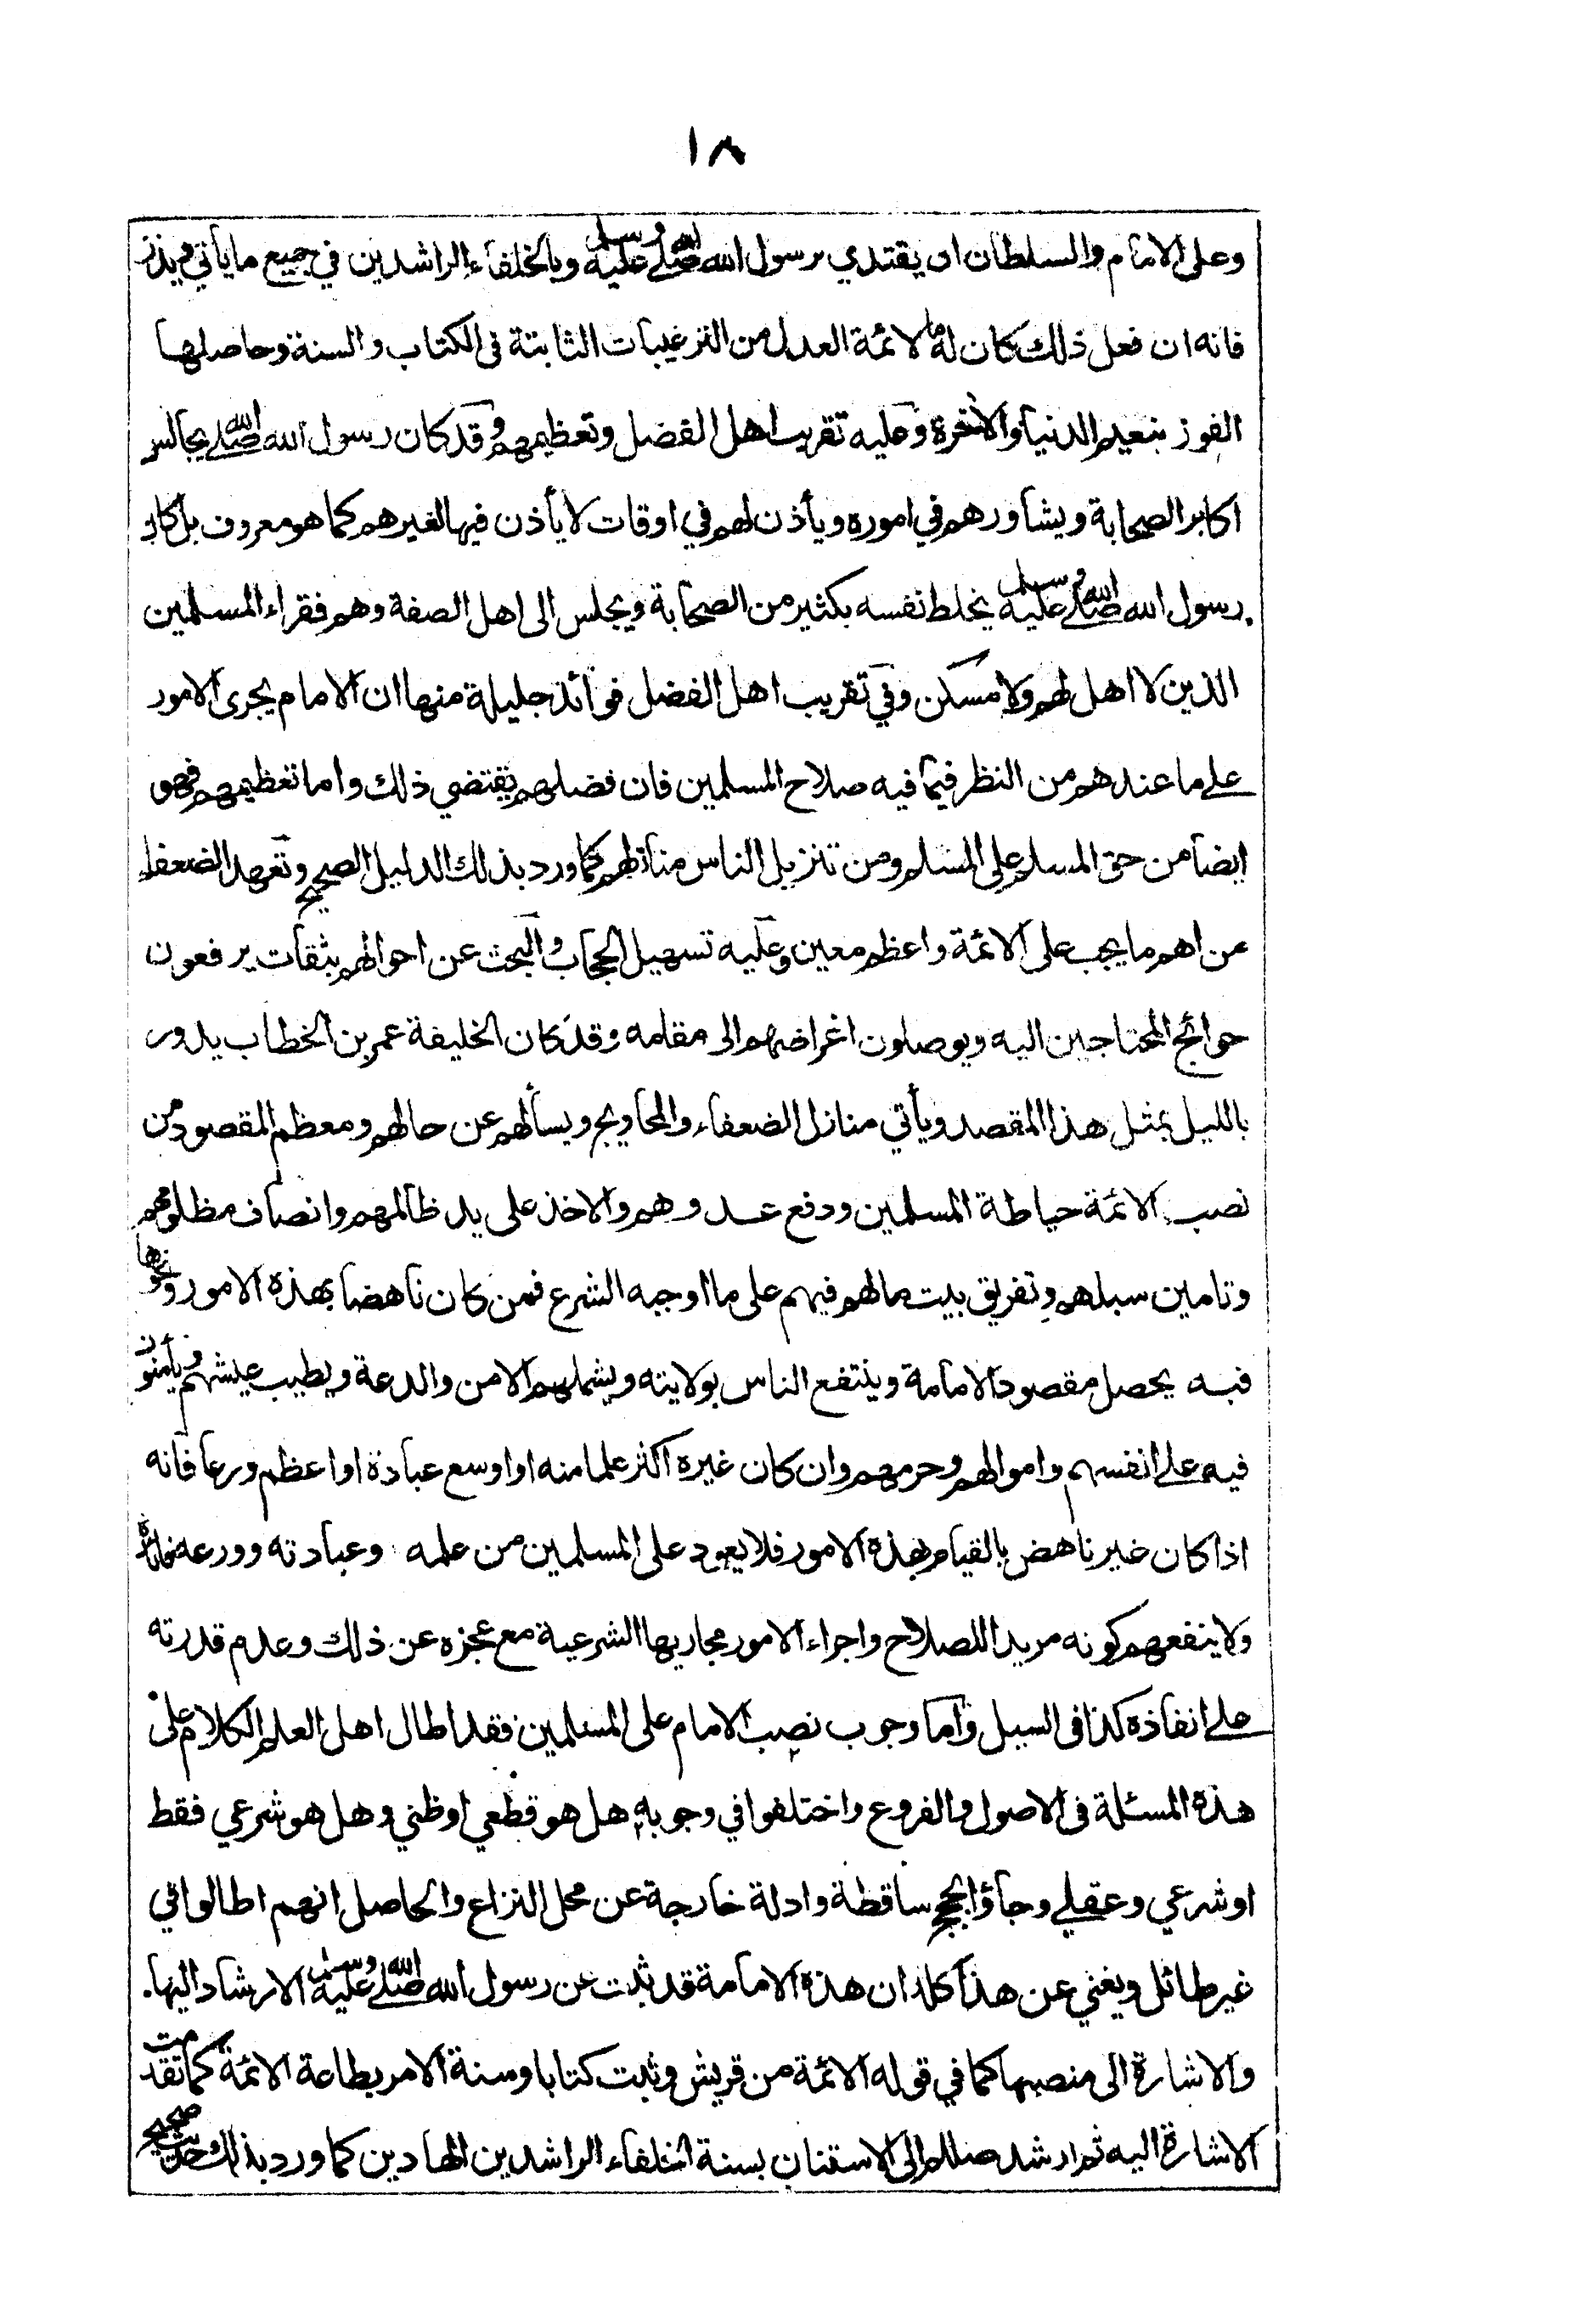 ١٨
وعلى الامام والسلطان ان يقتدي برسول الله صلى الله عليه وسلم وبالخلفاء الراشدين في جميع ما يأتي ويذر
فانه ان فعل ذلك كان له ما لائمة العدل من الترغيبات الثابتة فى الكتاب والسنة وحاصلها
الفوز بنعيم الدنيا والاخرة وعليه تقريب اهل الفضل وتعظيمهم وقد كان رسول الله صلى الله يجالس
اكابر الصحابة ويشاورهم في اموره ويأذن لهم في اوقات لا يأذن فيها لغيرهم كما هو معروف بل كان
رسول الله صلى الله عليه وسلم يخلط نفسه بكثير من الصحابة ويجلس الى اهل الصفة وهم فقراء المسلمين
الذين لا اهل لهم ولا مسكن وفي تقريب اهل الفضل فوائد جليلة منها ان الامام يجرى الامور
على ما عندهم من النظر فيما فيه صلاح المسلمين فان فضلهم يقتضي ذلك واما تعظيمهم فهو
ايضا من حق المسلم على المسلم ومن تنزيل الناس منازلهم كما ورد بذلك الدليل الصحيح وتعهد الضعفاء
من اهم ما يجب على الائمة واعظم معين وعليه تسهيل الحجاب والبحث عن احوالهم بثقات يرفعون
حوائج المحتاجين اليه ويوصلون اغراضهم الى مقامه وقد كان الخليفة عمر بن الخطاب يدور
بالليل بمثل هذا المقصد ويأتي منازل الضعفاء والمحاويج ويسألهم عن حالهم ومعظم المقصود من
نصب الائمة حياطة المسلمين ودفع عدوهم والاخذ على يد ظالمهم وانصاف مظلومهم
وتامين سبلهم وتفريق بيت مالهم فيهم على ما اوجبه الشرع فمن كان ناهضا بهذه الامور ونحوها
فبه يحصل مقصود الامامة وينتفع الناس بولايته ويشملهم الامن والدعة ويطيب عيشهم ويأمنون
فيه على انفسهم واموالهم وحرمهم وان كان غيره اكثر علما منه او اوسع عبادة او اعظم ورعا فانه
اذا كان غير ناهض بالقيام بهذه الامور فلا يعود على المسلمين من علمه وعبادته وورعه فائدة
ولا ينفعهم كونه مريدا للصلاح واجراء الامور مجاريها الشرعية مع عجزه عن ذلك وعدم قدرته
على انفاذه كذا فى السيل واما وجوب نصب الامام على المسلمين فقد اطال اهل العلم الكلام على
هذه المسئلة فى الاصول والفروع واختلفوا في وجوبه هل هو قطعي او ظني وهل هو شرعي فقط
او شرعي وعقلي وجاؤا بحجج ساقطة وادلة خارجة عن محل النزاع والحاصل انهم اطالوا في
غير طائل ويغني عن هذا كله ان هذه الامامة قد ثبت عن رسول الله صلى الله عليه وسلم الارشاد اليها.
والاشارة الى منصبها كما في قوله الائمة من قريش وثبت كتابا وسنة الامر بطاعة الائمة كما تقدمت
الاشارة اليه ثم ارشد صللم الى الاستنان بسنة الخلفاء الراشدين الهادين كما ورد بذلك حديث صحيح